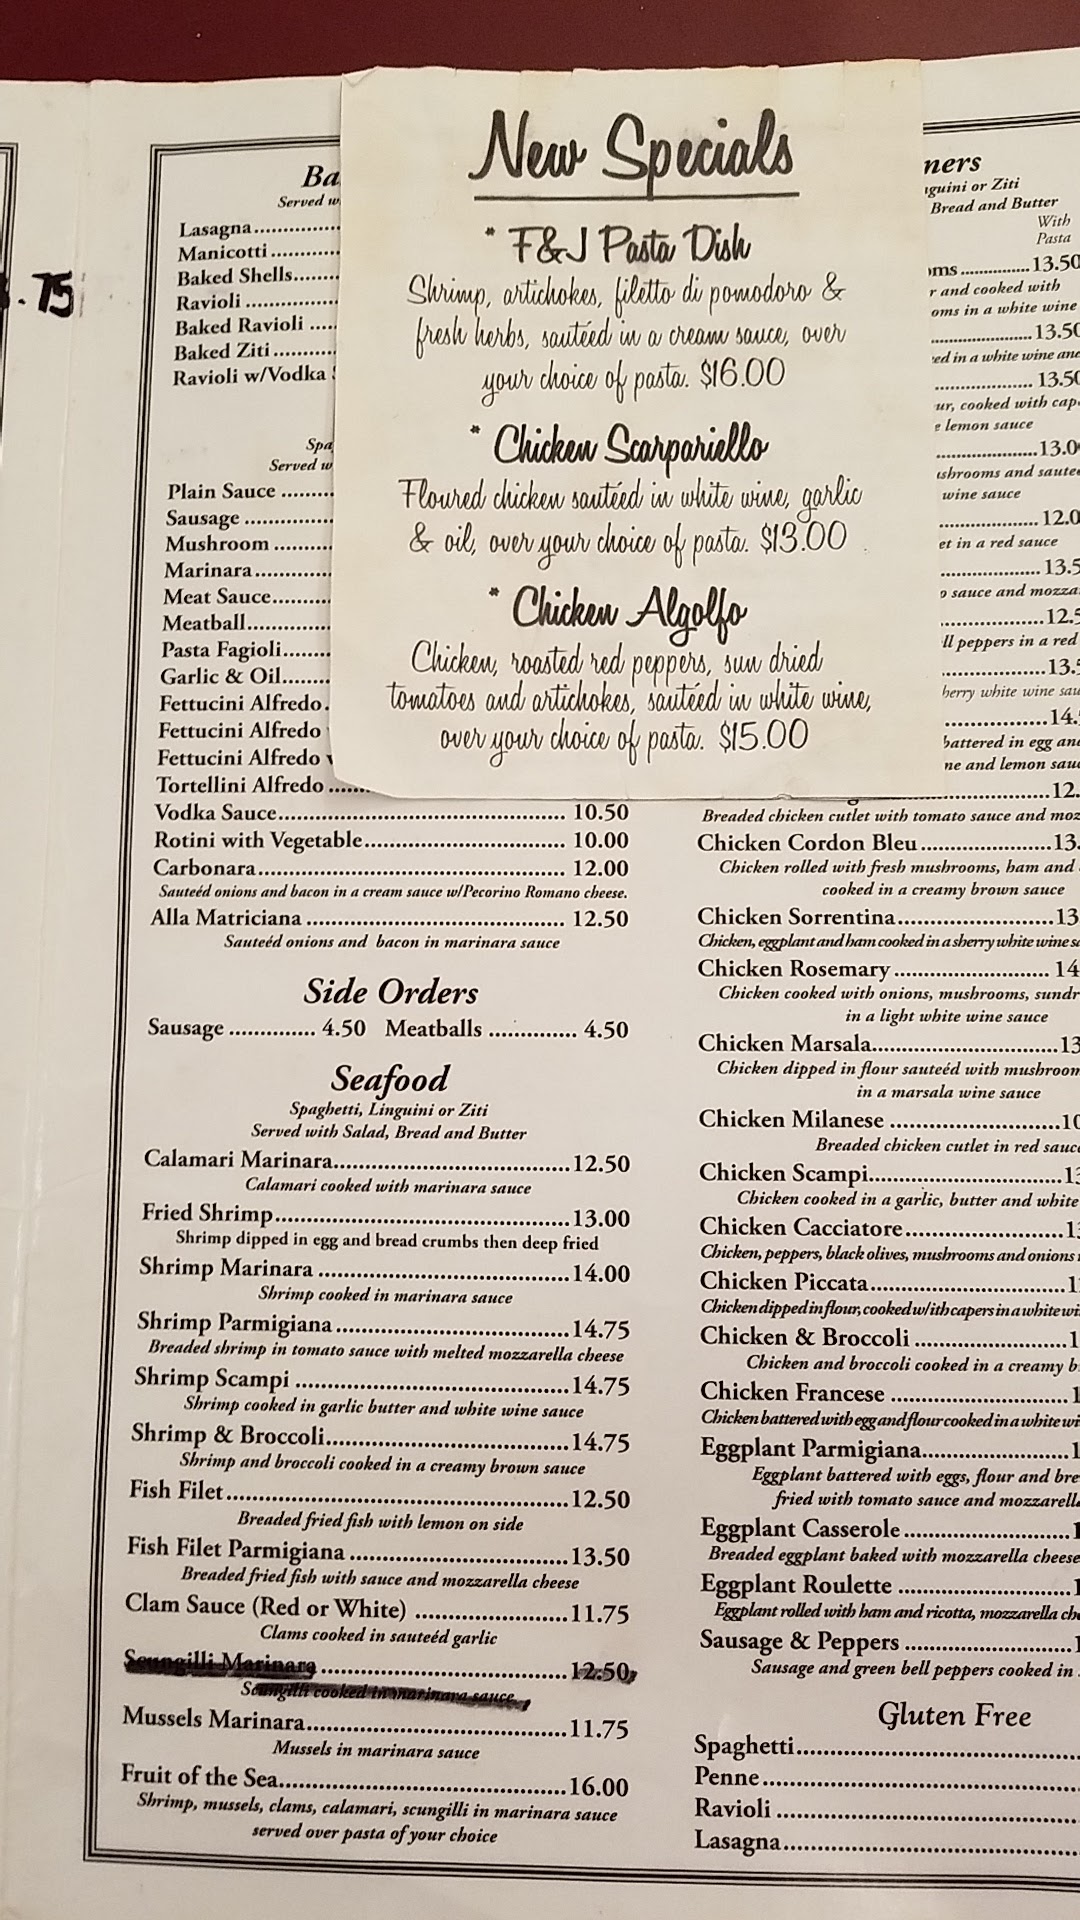 .75
New Specials
* F&J Pasta Dish
Shrimp, artichokes, filetto di pomodoro &
fresh herbs, sautéed in a cream sauce, over
your choice of pasta. $16.00
* Chicken Scarpariello
Floured chicken sautéed in white wine, garlic
& oil, over your choice of pasta. $13.00
* Chicken Algolfo
Chicken, roasted red peppers, sun dried
tomatoes and artichokes, sautéed in white wine,
over your choice of pasta. $15.00
Served
Lasagna
Manicotti
Baked Shells
Ravioli
Baked Ravioli
Baked Ziti
Ravioli w/Vodka
Served
Plain Sauce
Sausage
Mushroom
Marinara
Meat Sauce
Meatball
Pasta Fagioli
Garlic & Oil
Fettucini Alfredo
Fettucini Alfredo
Fettucini Alfredo
Tortellini Alfredo
Vodka Sauce 10.50
Rotini with Vegetable 10.00
Carbonara 12.00
Sauteéd onions and bacon in a cream sauce w/Pecorino Romano cheese.
Alla Matriciana 12.50
Sauteéd onions and bacon in marinara sauce
Side Orders
Sausage 4.50 Meatballs 4.50
Seafood
Spaghetti, Linguini or Ziti
Served with Salad, Bread and Butter
Calamari Marinara 12.50
Calamari cooked with marinara sauce
Fried Shrimp 13.00
Shrimp dipped in egg and bread crumbs then deep fried
Shrimp Marinara 14.00
Shrimp cooked in marinara sauce
Shrimp Parmigiana 14.75
Breaded shrimp in tomato sauce with melted mozzarella cheese
Shrimp Scampi 14.75
Shrimp cooked in garlic butter and white wine sauce
Shrimp & Broccoli 14.75
Shrimp and broccoli cooked in a creamy brown sauce
Fish Filet 12.50
Breaded fried fish with lemon on side
Fish Filet Parmigiana 13.50
Breaded fried fish with sauce and mozzarella cheese
Clam Sauce (Red or White) 11.75
Clams cooked in sauteéd garlic
Scungilli Marinara 12.50
Scungilli cooked in marinara sauce
Mussels Marinara 11.75
Mussels in marinara sauce
Fruit of the Sea 16.00
Shrimp, mussels, clams, calamari, scungilli in marinara sauce
served over pasta of your choice
or Ziti
Bread and Butter
With
Pasta
13.50
and cooked with
in a white wine
13.50
in a white wine
13.50
cooked with
lemon sauce
13.0
and
wine sauce
12.0
in a red sauce
13.5
sauce and
12.5
peppers in a red
13.5
white wine
14.
battered in egg
and lemon
12.
Breaded chicken cutlet with tomato sauce and
Chicken Cordon Bleu 13.
Chicken rolled with fresh mushrooms, ham and
cooked in a creamy brown sauce
Chicken Sorrentina 13
Chicken, eggplant and ham cooked in a sherry white wine
Chicken Rosemary 14
Chicken cooked with onions, mushrooms,
in a light white wine sauce
Chicken Marsala 13
Chicken dipped in flour sauteéd with
in a marsala wine sauce
Chicken Milanese 10
Breaded chicken cutlet in red
Chicken Scampi 13
Chicken cooked in a garlic, butter and white
Chicken Cacciatore 1
Chicken, peppers, black olives, mushrooms and onions
Chicken Piccata 1
Chicken dipped in flour, cooked w/ith capers in a white
Chicken & Broccoli 1
Chicken and broccoli cooked in a creamy
Chicken Francese 1
Chicken battered with egg and flour cooked in a white
Eggplant Parmigiana 1
Eggplant battered with eggs, flour and
fried with tomato sauce and
Eggplant Casserole 1
Breaded eggplant baked with mozzarella cheese
Eggplant Roulette 1
Eggplant rolled with ham and ricotta, mozzarella
Sausage & Peppers 1
Sausage and green bell peppers cooked in
Gluten Free
Spaghetti
Penne
Ravioli
Lasagna